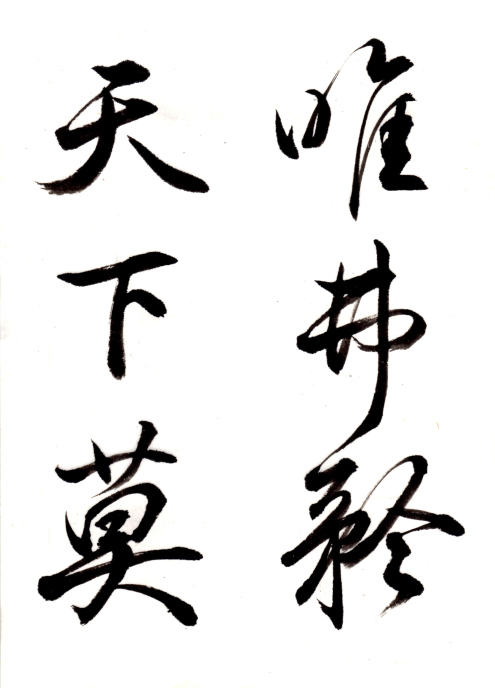 唯弗矜
天下莫